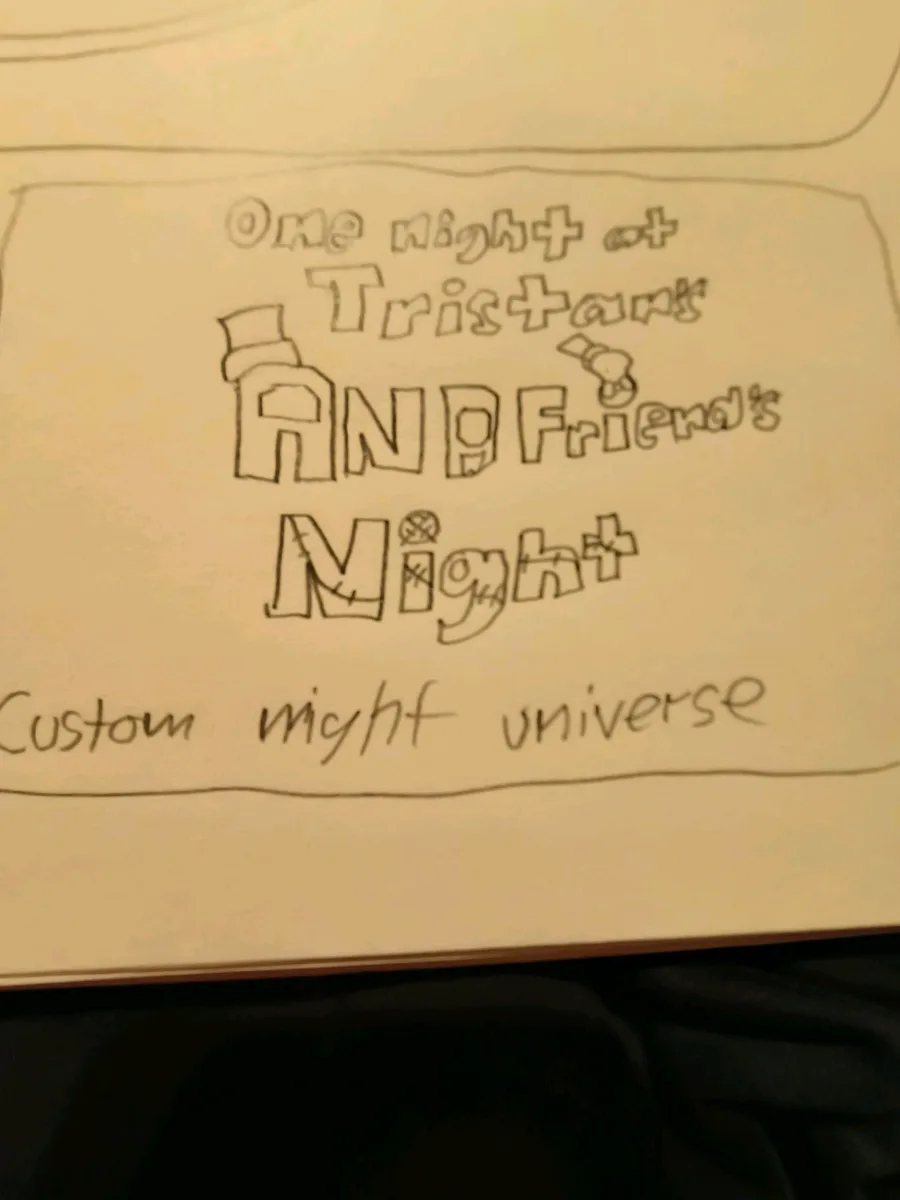 One night at
Tristan's
AND Friend's
Night
Custom night universe